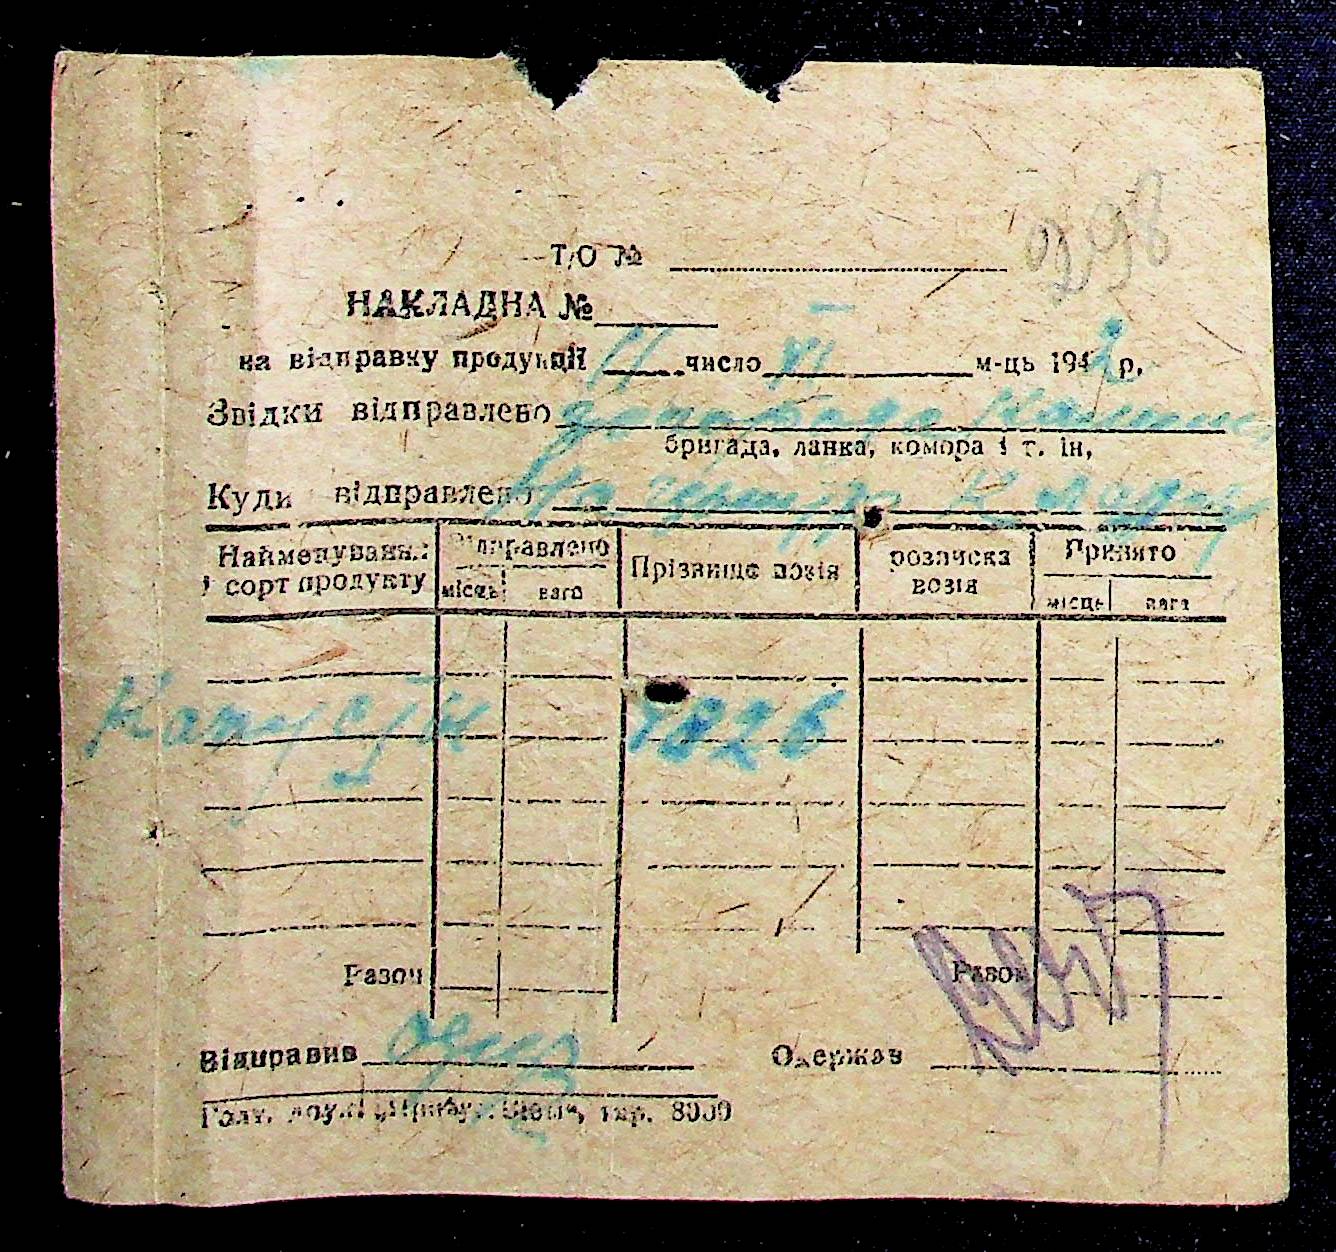 298
Т/О №
НАКЛАДНА №
на відправку продукції 11 число VI м-ць 1942 р.
Звідки відправлено
бригада, ланка, комора і т. ін,
Куди відправлено На
Найменування і сорт продукту
Відправлено
місць вага
Прізвище возія
розписка возія
Прийнято
місць вага
Капусти 1826
Разом Разом
Відправив Одержав
тир. 8000